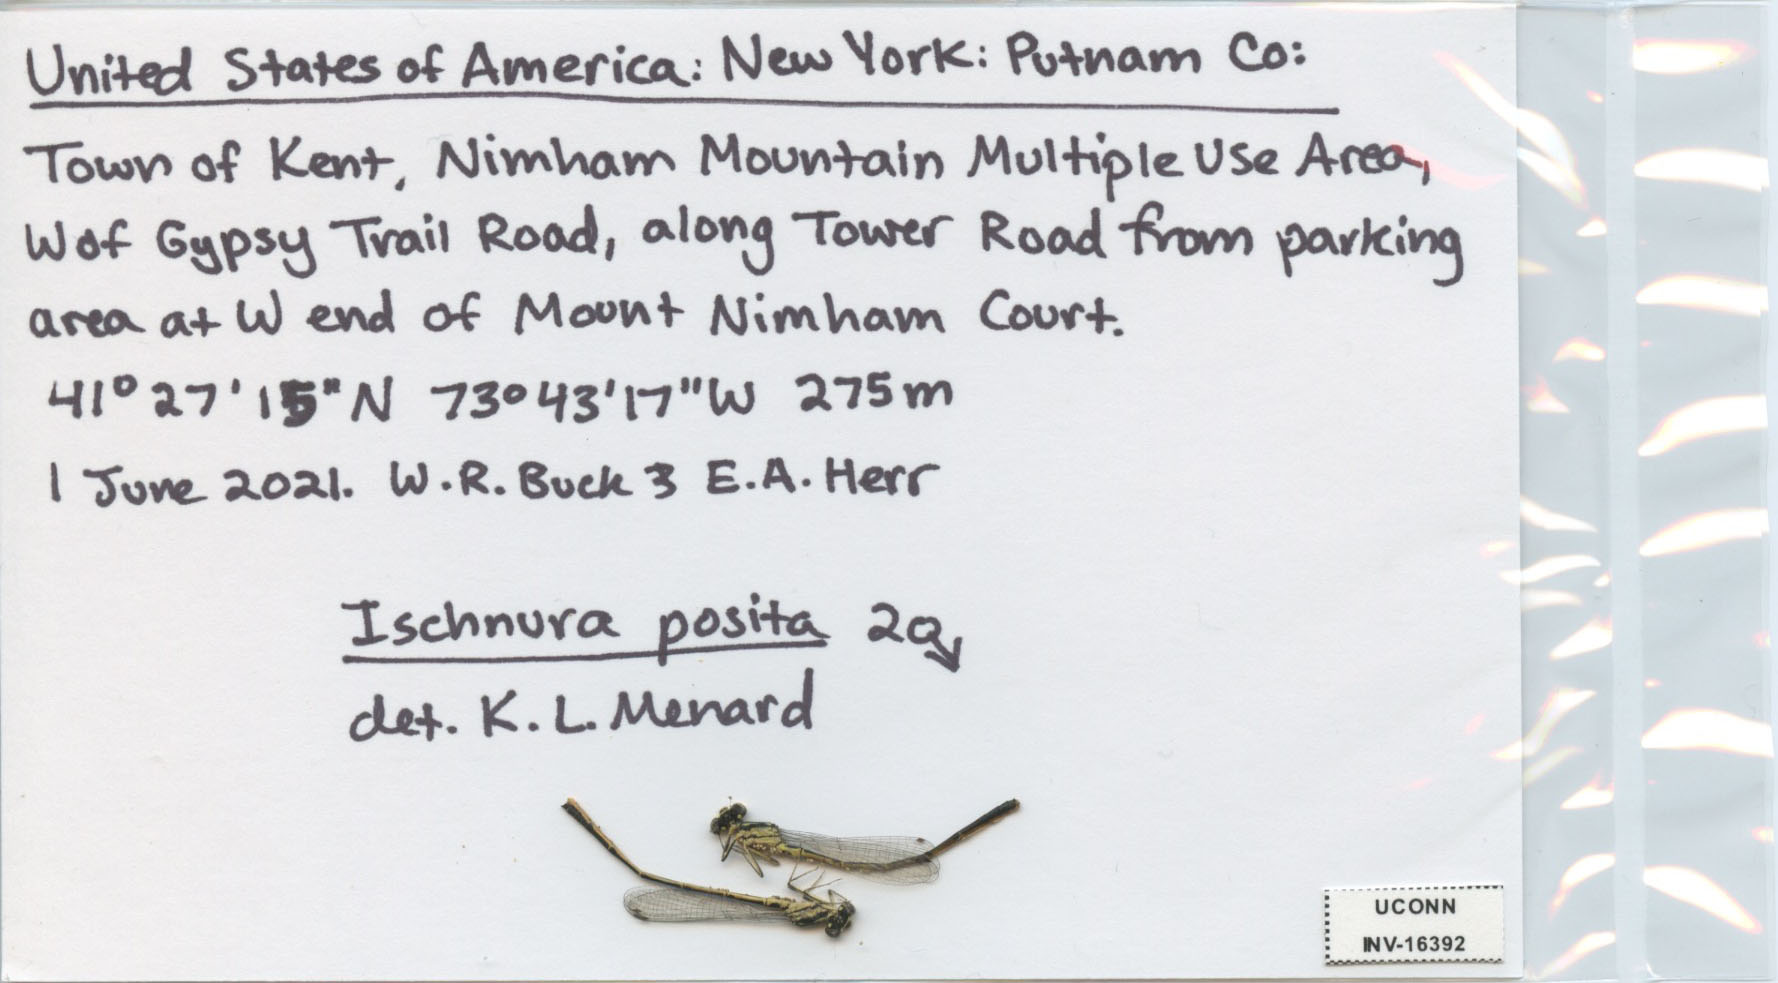 United States of America: New York: Putnam Co:
Town of Kent, Nimham Mountain Multiple Use Area,
W of Gypsy Trail Road, along Tower Road from parking
area at W end of Mount Nimham Court.
41° 27' 15" N 73° 43' 17" W 275m
1 June 2021. W.R. Buck & E.A. Herr
Ischnura posita 2♂
det. K.L. Menard
UCONN
INV-16392